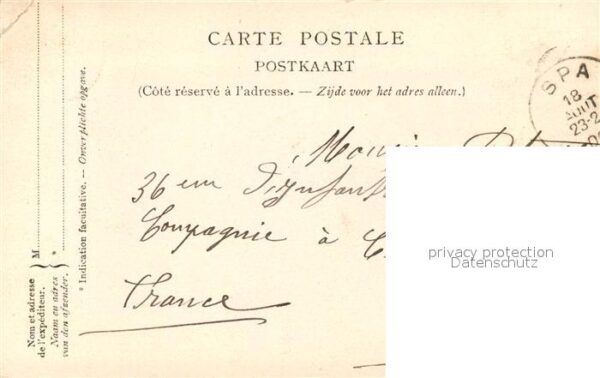 CARTE POSTALE
POSTKAART
(Côté réservé à l'adresse. — Zijde voor het adres alleen.)
SPA
18
AOUT
23-2
36 em
Compagnie à C
France
privacy protection
Datenschutz
* Indication facultative. — Onverplichte opgave.
Nom et adresse
de l'expéditeur.
Naam en adres
van den afzender.
M
*